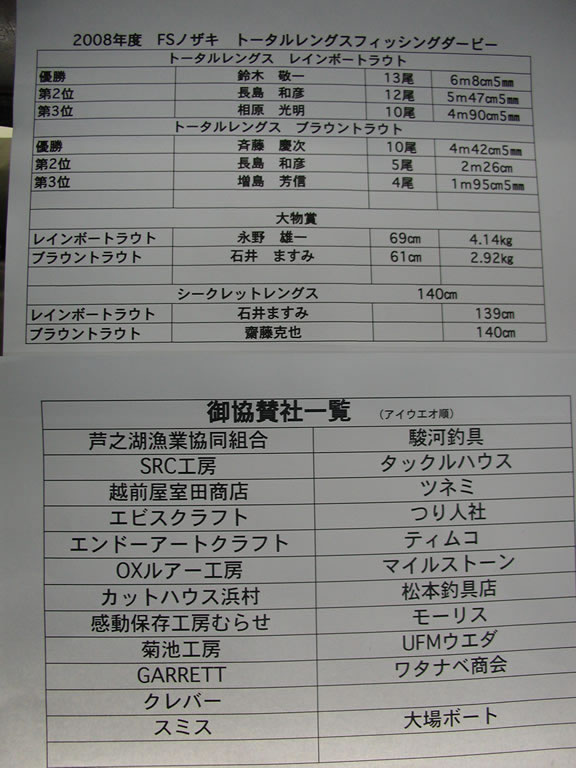 2008年度 FSノザキ トータルレングスフィッシングダービー
トータルレングス レインボートラウト
優勝 鈴木 敬一 13尾 6m8cm5mm
第2位 長島 和彦 12尾 5m47cm5mm
第3位 相原 光明 10尾 4m90cm5mm
トータルレングス ブラウントラウト
優勝 斉藤 慶次 10尾 4m42cm5mm
第2位 長島 和彦 5尾 2m26cm
第3位 増島 芳信 4尾 1m95cm5mm
大物賞
レインボートラウト 永野 雄一 69cm 4.14kg
ブラウントラウト 石井 ますみ 61cm 2.92kg
シークレットレングス 140cm
レインボートラウト 石井ますみ 139cm
ブラウントラウト 齋藤克也 140cm
御協賛社一覧 (アイウエオ順)
芦之湖漁業協同組合 駿河釣具
SRC工房 タックルハウス
越前屋室田商店 ツネミ
エビスクラフト つり人社
エンドーアートクラフト ティムコ
OXルアー工房 マイルストーン
カットハウス浜村 松本釣具店
感動保存工房むらせ モーリス
菊池工房 UFMウエダ
GARRETT ワタナベ商会
クレバー
スミス 大場ボート